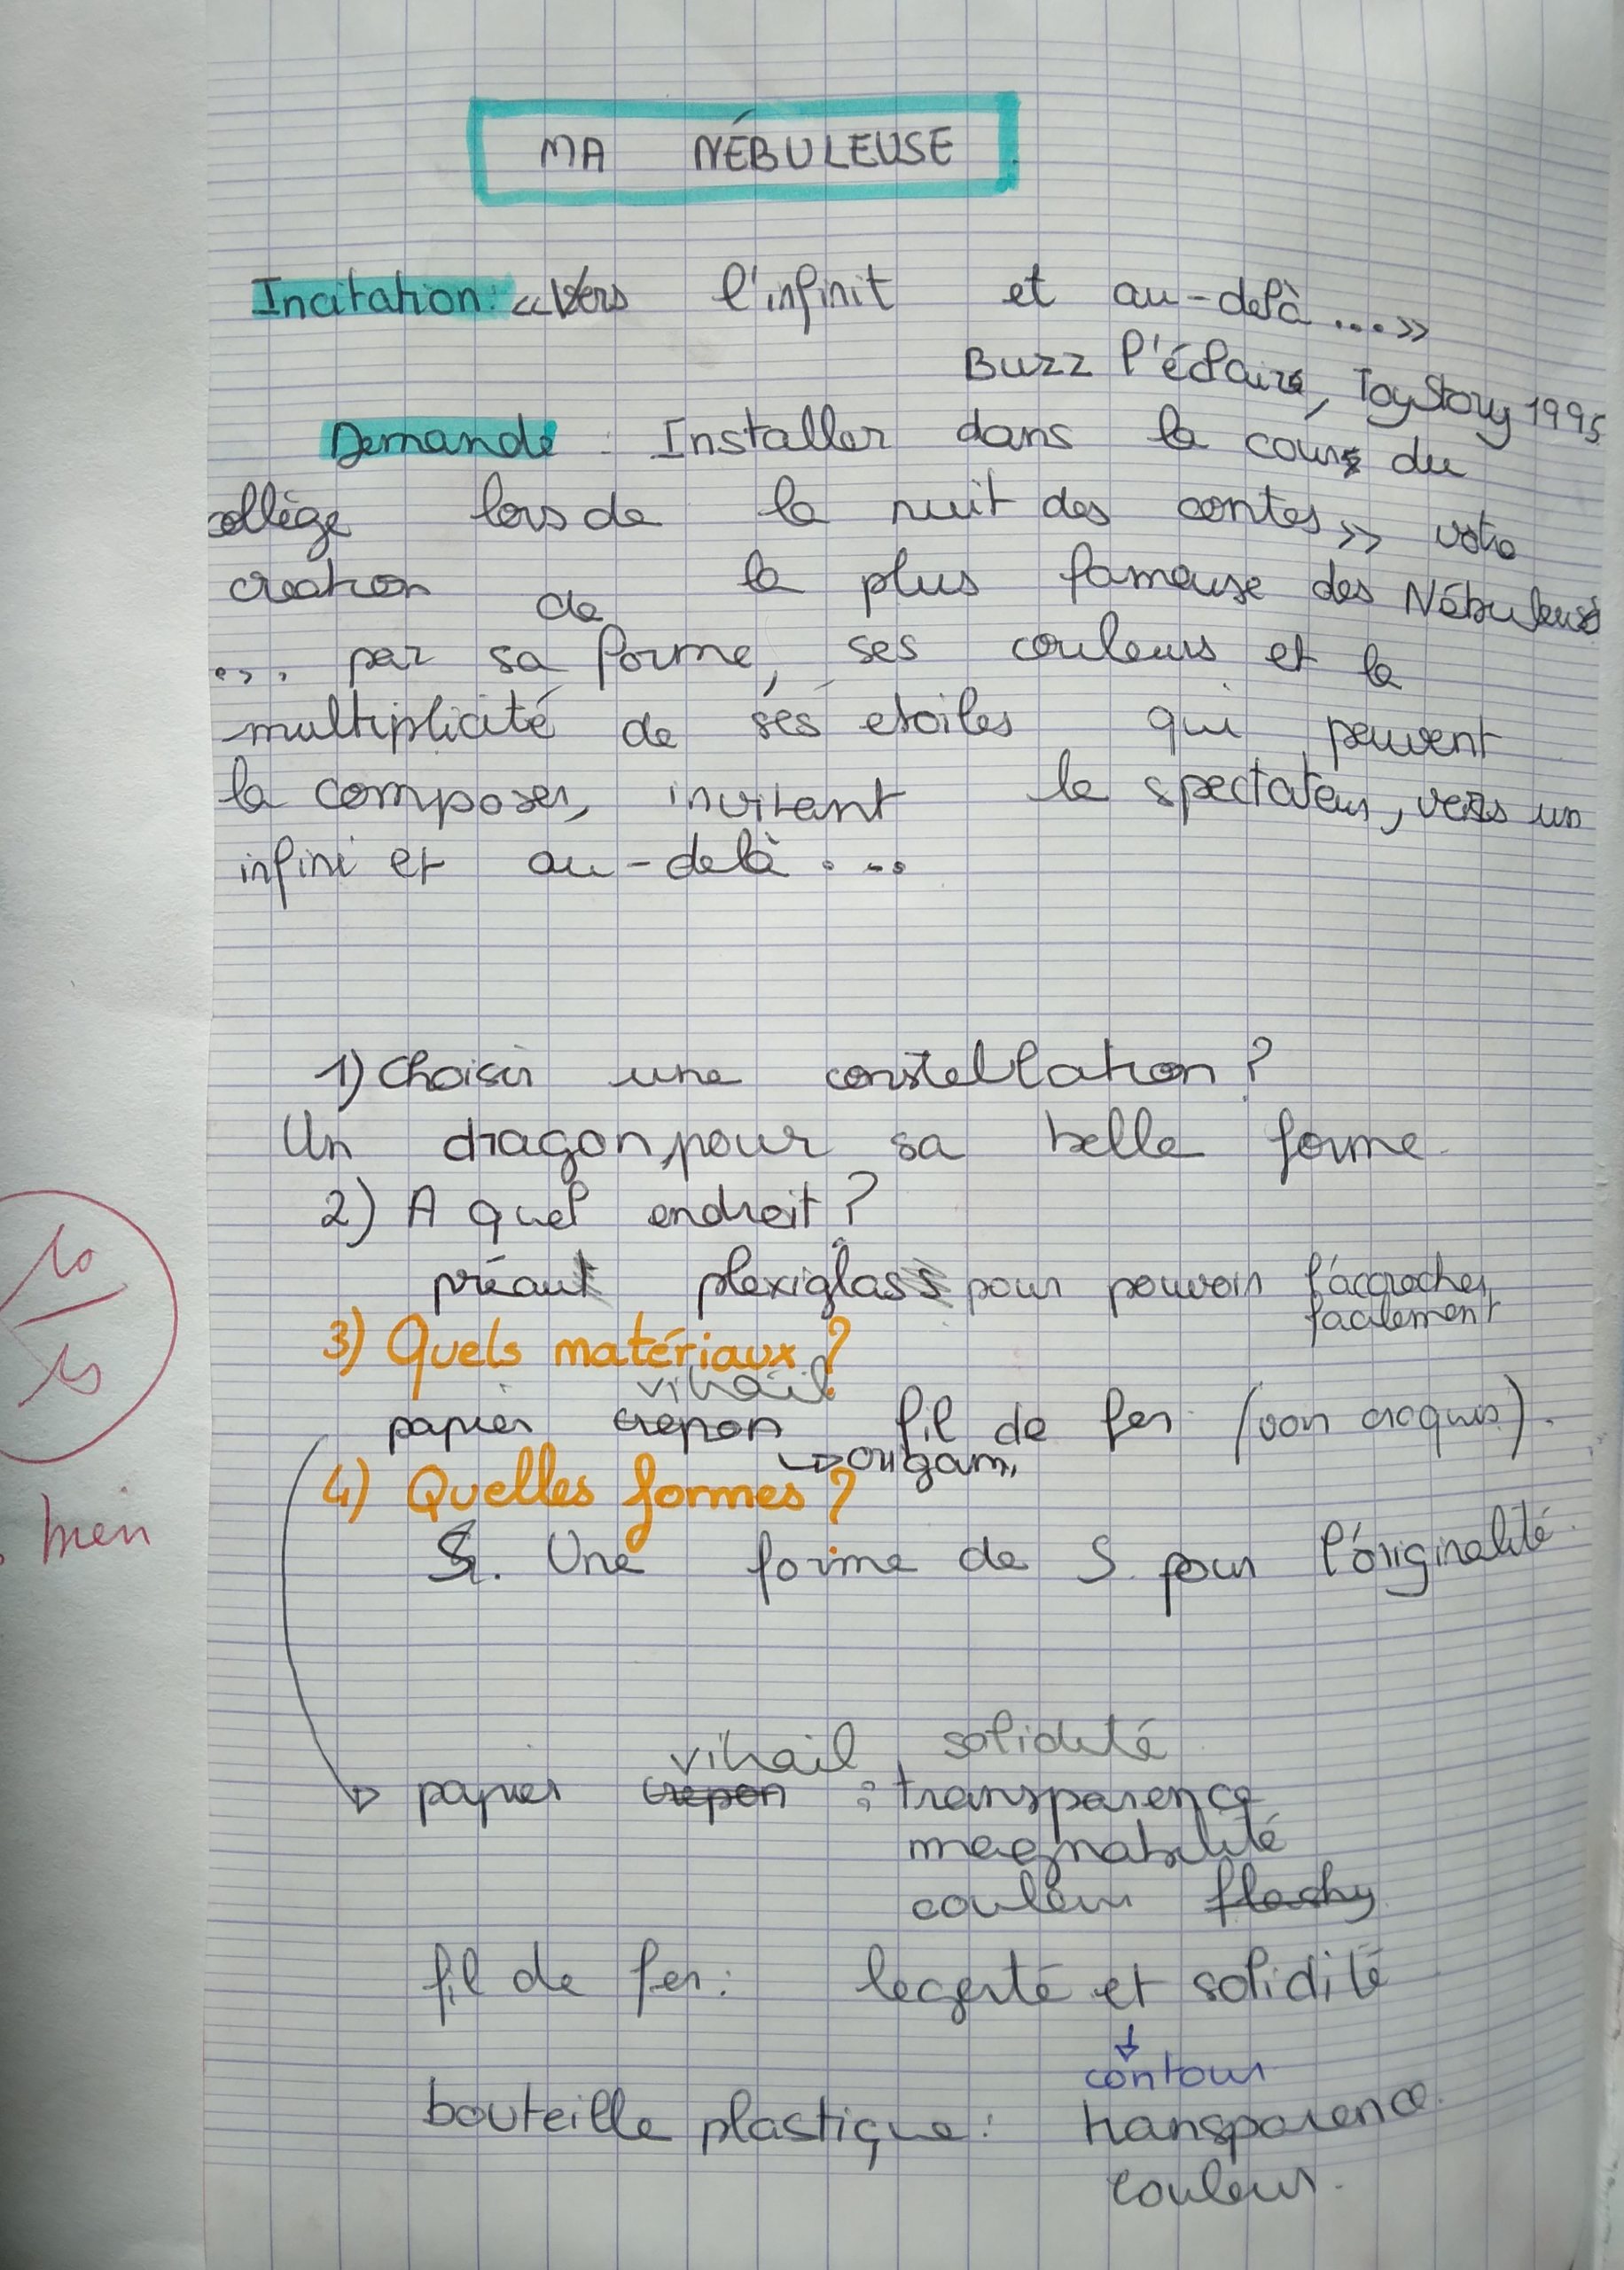 MA NÉBULEUSE
Incitation: «Vers l'infinit et au-delà...»
Buzz l'éclair, Toy Story 1995
Demande : Installer dans la cour du
collège lors de la nuit des contes» votre
creation de la plus fameuse des Nébuleuses
... par sa forme, ses couleurs et la
multiplicité de ses etoiles qui peuvent
la composer, invitant le spectateur, vers un
infini et au-delà...
1) Choisir une constellation?
Un dragon, pour sa belle forme.
2) A quel endroit?
préau plexiglass pour pouvoir l'accrocher
facilement
3) Quels matériaux?
vitrail
papier crepon fil de fer (voir croquis).
↳ origami
4) Quelles formes?
S. Une forme de S. pour l'originalité.
vitrail solidité
papier crepon : transparence
couleur flashy
fil de fer: legerté et solidité
↓
contour
bouteille plastique: transparence.
couleur.
10
bien